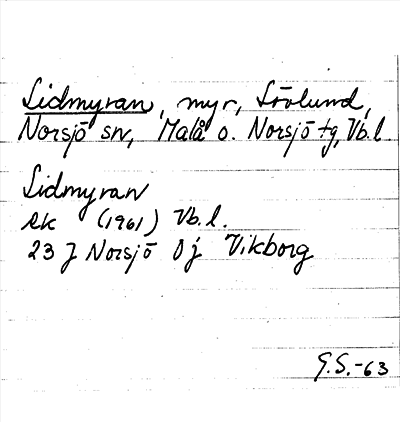 Lidmyran, myr, Lövlund,
Norsjö sn, Malå o. Norsjö tg, Vb.l
Lidmyran
ek (1961) Vb.l.
23 J Norsjö 0 j Vikborg
G.S.-63